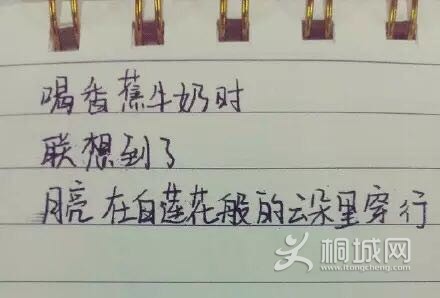 喝香蕉牛奶时
联想到了
月亮在白莲花般的云朵里穿行
桐城网
www.itongcheng.com